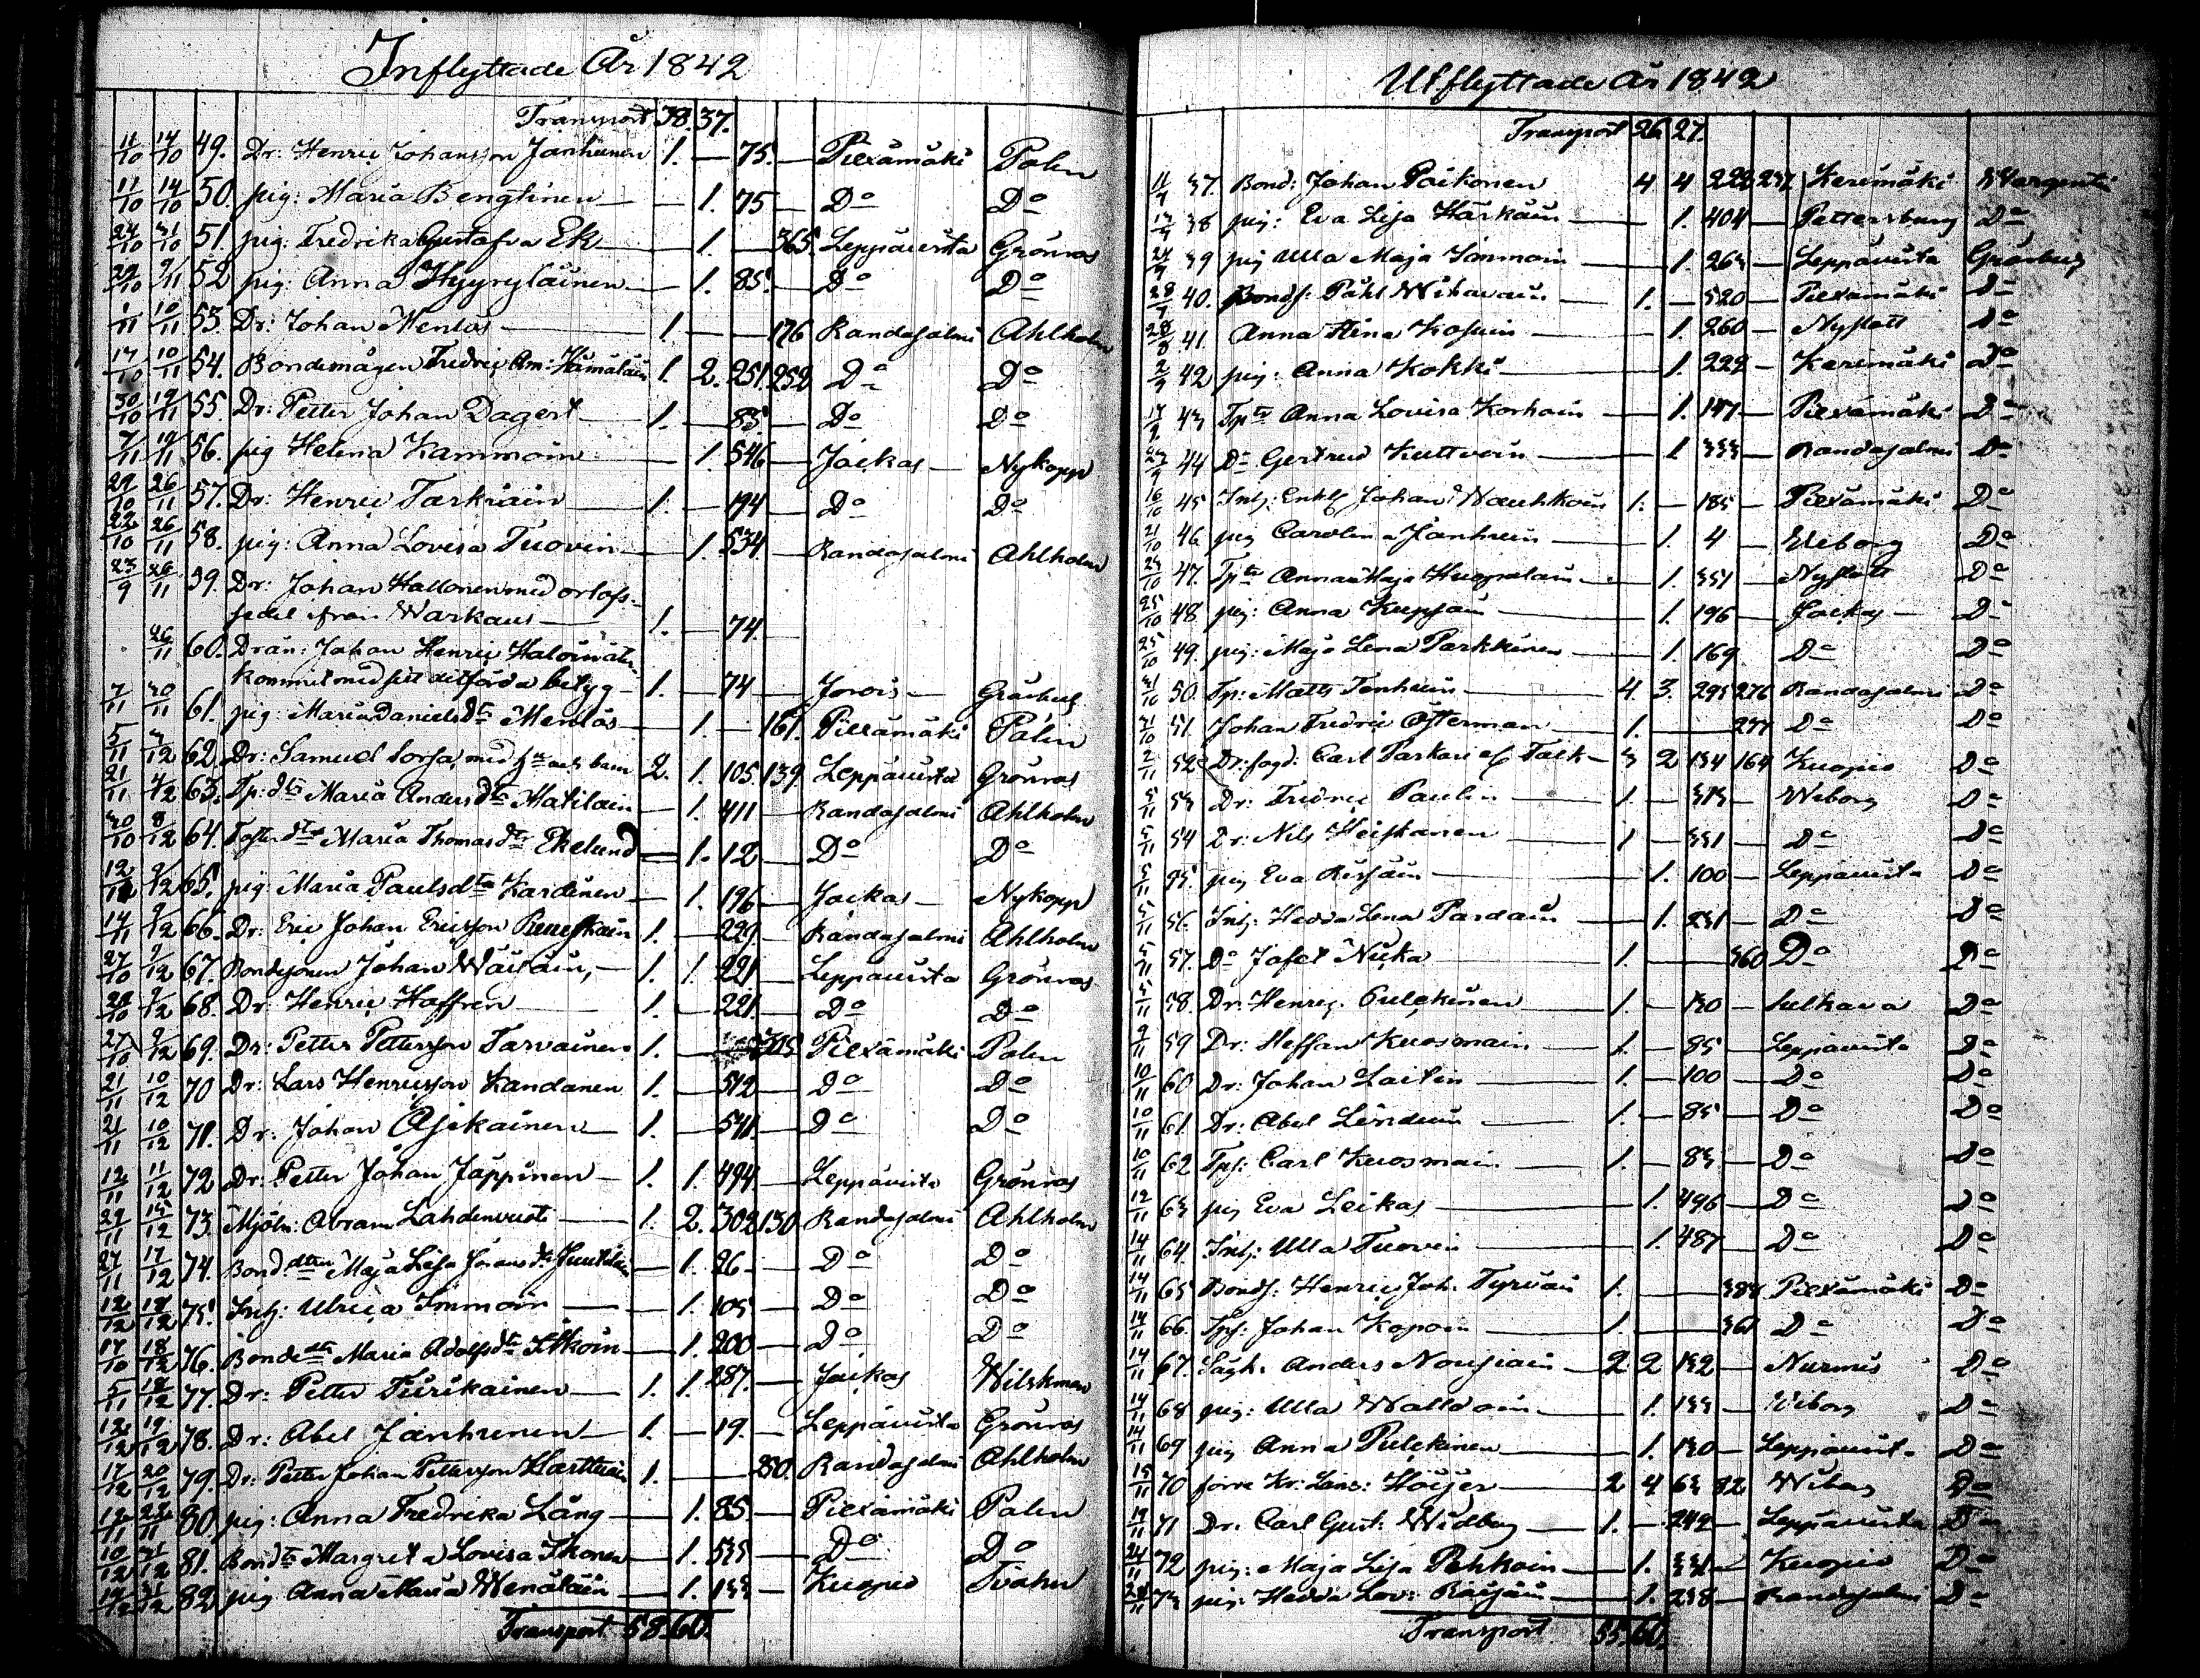 Inflyttade År 1842
Transport 38. 37.
11/10 14/10 49. Dr: Henric Johansson Janhunen 1. — 75. — Piexämäki Palin
11/10 14/10 50. pig: Maria Bengtinen — 1. 75 — Do Do
24/10 31/10 51. pig: Fredrika Gustafva Ek — 1. — 365. Leppävirta Grönros
29/10 9/11 52 pig: Anna Hyyryläinen — 1. 85. — Do Do
1/11 10/11 53. Dr: Johan Wenläs 1. — — 176 Randasalmi Ahlholm
17/10 10/11 54. Bondemågen Fredric Am: Hämäläin 1. 2. 251. 252 Do Do
30/10 19/11 55 Dr: Petter Johan Dagert 1. — 83. — Do Do
7/11 19/11 56. pig Helena Kammoin — 1. 546 — Jockas Nykopp
29/10 26/11 57. Dr: Henric Tarkiain 1. — 194 — Do Do
22/10 26/11 58. pig: Anna Lovisa Tuovin — 1. 534. — Randasalmi Ahlholm
23/9 26/11 59. Dr: Johan Hallonen med orlofs-
sedel ifrån Warkaus 1. — 74. —
26/11 60. Drän: Johan Henric Haloin åter-
kommit med sitt ditförda betyg 1. — 74 — Jorois Gråsten
7/11 30/11 61. pig: Maria Danielsdtr Menläs — 1. — 161. Piexämäki Palin
5/11 4/12 62. Dr: Samuel Sorsa, med h. och barn 2. 1. 105. 139. Leppävirta Grönros
21/11 4/12 63. Tp: dtr Maria Andersdtr Matilain — 1. 411 — Randasalmi Ahlholm
30/10 8/12 64. Maria Thomasdtr Ekelund — 1. 12 — Do Do
9/12 65. pig Maria Paulsdtr Kardinen — 1. 196 — Jockas Nykopp
14/11 9/12 66. Dr: Eric Johan Ericsson 1. — 229. — Randasalmi Ahlholm
27/10 9/12 67. Bondesonen Johan Wäisäin, 1. 1. 221 — Leppävirta Grönros
28/10 9/12 68. Dr. Henric Haffren 1. — 221. — Do Do
27/10 9/12 69. Dr: Petter Pettersson Tarvainen 1. — Piexämäki Palin
21/11 10/12 70 Dr: Lars Henricsson Kandanen 1. — 512 — Do Do
21/11 10/12 71. Dr: Johan Asikainen 1. — 541. — Do Do
12/11 11/12 72 Dr: Petter Johan Jäppinen 1. 1. 494. — Leppävirta Grönros
29/11 15/12 73. Mjöln: Abram Lahdenvesi 1. 2. 302 130. Randasalmi Ahlholm
27/11 17/12 74. Bond.dttr Maja Lisa — 1. 26 — Do Do
12/12 18/12 75. Inh: Ulrica Immoin — 1. 105 — Do Do
17/10 18/12 76. Bonde Maria Adolfsdtr Itkoin 1. 200 — Do Do
5/11 18/12 77. Dr: Petter Piirikainen 1. 1. 287. — Jockas Wilskman
12/12 19/12 78. Dr: Abel Janhunen 1. — 19. — Leppävirta Grönros
17/12 20/12 79. Dr: Petter Johan Pettersson Harttuin 1. — — 250. Randasalmi Ahlholm
12/11 22/11 80. pig: Anna Fredrika Lång — 1. 85. — Piexämäki Palin
10/12 31/12 81. Bond Margreta Lovisa Ikonen — 1. 535 — Do Do
17/12 31/12 82 pig Anna Maria Wenäläin — 1. 133 — Kuopio
Transport 58. 60.
Utflyttade År 1842
Transport 26 27.
37. Bond: Johan Paikonen 4 4 222 237 Kerimäki
38 pig: Eva Lisa Härkäin — 1. 404 — Pettersburg Do
39 pig Ulla Maja Immoin — 1. 263 — Leppävirta Gråsten
28/7 40. Bonds: Påhl Wihavain 1. — 520 — Piexämäki Do
28/8 41. Anna Stina Kosuin — 1. 260 — Nyslott Do
2/9 42 pig: Anna Kokki — 1. 222 — Kerimäki Do
43 Tp: Anna Lovisa Korhoin — 1. 147 — Piexämäki Do
44 Do Gertrud Kuttvoin — 1 333 — Randasalmi Do
16/10 45 Inh: Johan Nauhkoin 1. — 185 — Piexämäki Do
21/10 46 pig Carolina Janhuin — 1. 4 — Wiborg Do
23/10 47. Tp: Anna Maja Huopalain — 1. 351 — Nyslott Do
25/10 48. pig: Anna Kupsain — 1. 196 — Jockas Do
25/10 49. pig: Maja Lena Parkkinen — 1. 169 Do Do
31/10 50. Tp: Matts Tenhuin 4. 3. 295 276 Randasalmi Do
31/10 51. Johan Fredric Österman 1. — 277 Do Do
2/11 52 Dr: fogd: Carl Parkari 3 2 134 164 Kuopio Do
5/11 53 Dr: Fredric Paulin 1. — 313 — Wiborg Do
5/11 54 Dr: Nils Heiskanen 1 — 331 — Do Do
5/11 55. pig Eva Rissäin — 1. 100 — Leppävirta Do
5/11 56. Inh: Hedda Lena Pardain — 1. 231 — Do Do
5/11 57. Do Jafet Nuka 1. — 360 Do Do
5/11 58. Dr: Henric Pulckinen 1. — 130 — Sulkava Do
9/11 59 Dr: Steffan Kuosmain 1. — 85 — Leppävirta Do
10/11 60 Dr: Johan Laitin 1. — 100 — Do Do
10/11 61. Dr: Abel Lindeuin 1. — 85 — Do Do
10/11 62 Tps: Carl Kuosmain 1. — 83 — Do Do
12/11 63 pig Eva Leikas — 1. 496 — Do Do
14/11 64. Inh: Ulla Tuovin — 1. 487 — Do Do
14/11 65 Bonds: Henric Joh. Tyrväi 1. — 384 Piexämäki Do
14/11 66. Tps: Johan Kopoin 1. — 361 Do Do
14/11 67. Anders Nousiain 2 2 132 — Nurmis Do
14/11 68 pig: Ulla Walldoin — 1. 133 — Wiborg Do
14/11 69 pig Anna Pulckinen — 1. 130 — Leppävirta Do
15/11 70 förre Kr: Lens: Höijer 2 4 63 82 Wiborg Do
19/11 71 Dr: Carl Gust: Widbug 1. — 242 — Leppävirta Do
24/11 72 pig: Maja Lisa Pehkoin — 1. 331 — Kuopio Do
28/11 73 pig: Hedda Lov: Räisäin — 1. 238 — Randasalmi Do
Transport 55. 60.